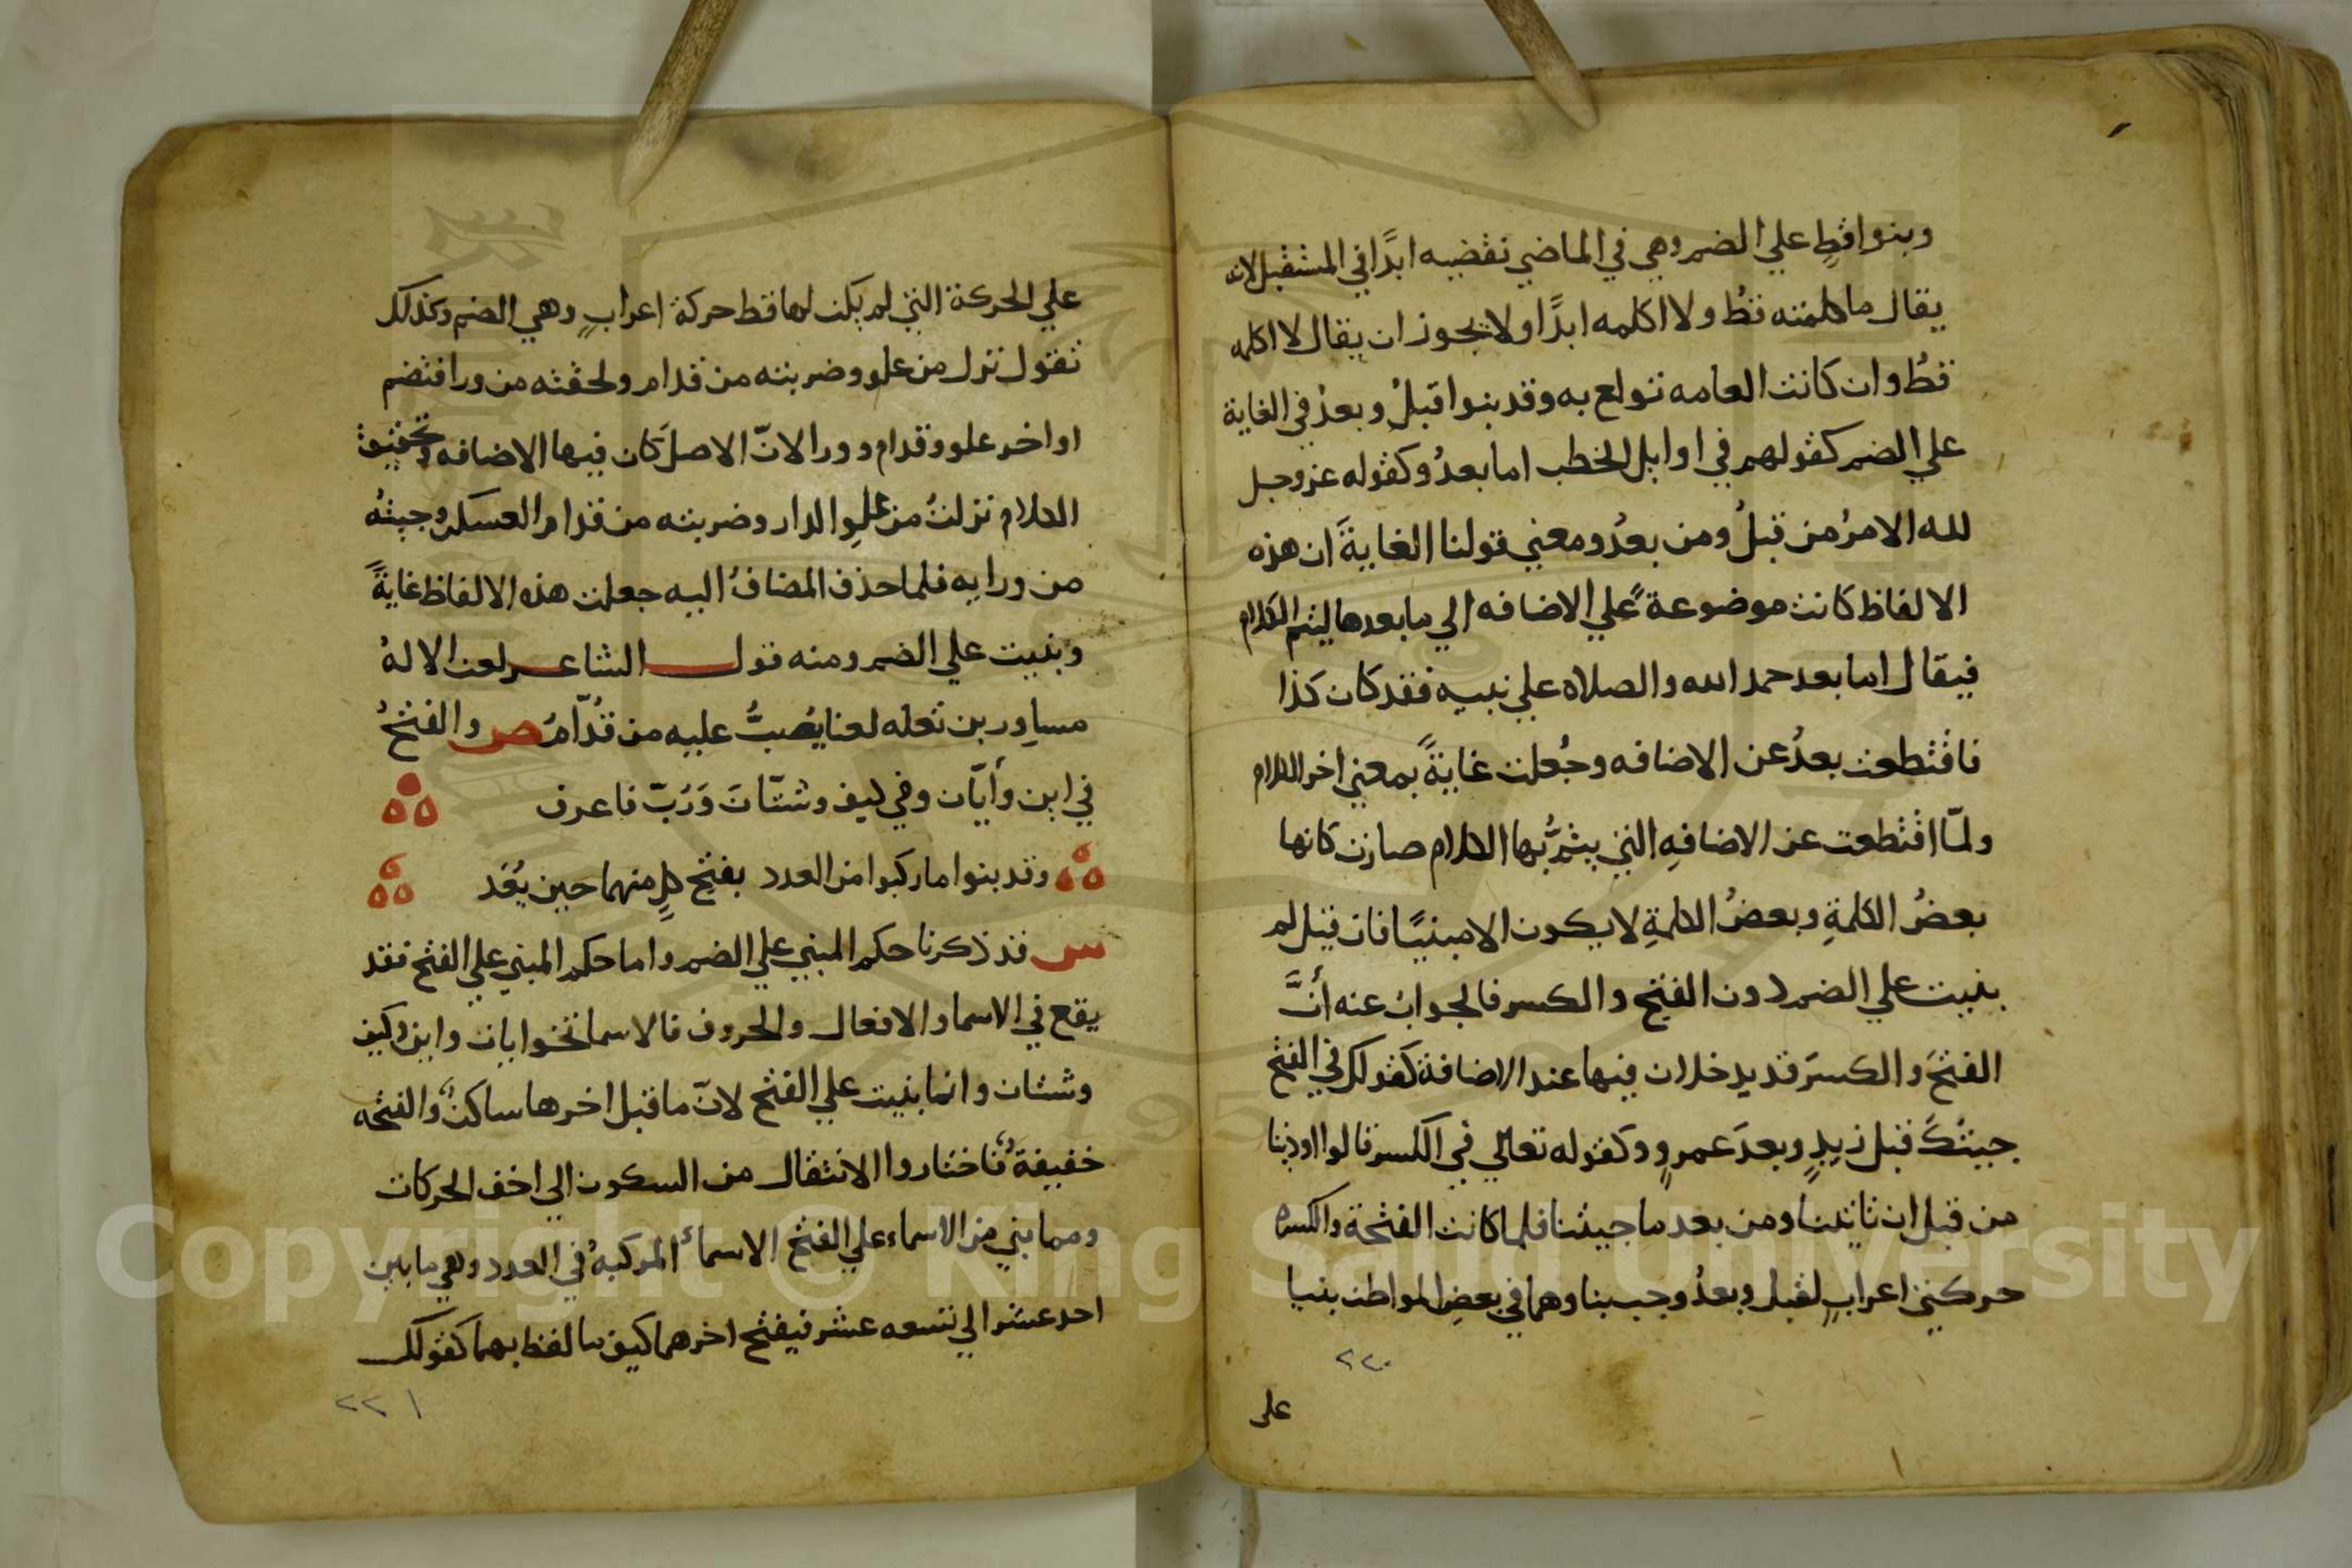 وبنوا قطِ علي الضم وهي في الماضي نقضيه ابدًا في المستقبل لانه
يقال ما كلمته قطُ ولا اكلمه ابدًا ولا يجوز ان يقال لا اكلمه
قطُ وان كانت العامه تولع به وقد بنوا قبلُ وبعدُ في الغاية
علي الضم كقولهم في اوايل الخطب اما بعدُ وكقوله عز وجل
لله الامرُ من قبلُ ومن بعدُ ومعني قولنا الغايةَ ان هذه
الالفاظ كانت موضوعةً علي الاضافه الي ما بعدها ليتم الكلام
فيقال اما بعد حمد الله والصلاه علي نبيه فقد كان كذا
فاقتطعت بعدُ عن الاضافه وجُعلت غايةً بمعني اخر الكلام
ولمّا اقتطعت عن الاضافهِ التي يتمُّ بها الكلام صارت كانها
بعضُ الكلمةِ وبعضُ الكلمةِ لا يكون الا مبنيًا فان قيل لم
بنيت علي الضم دون الفتح والكسر فالجوابُ عنه أنَّ
الفتحَ والكسرَ قد يدخلان فيها عند الاضافة كقولك في الفتح
جيتُكَ قبل زيدٍ وبعدَ عمرٍو وكقوله تعالي في الكسر قالوا اوذينا
من قبل ان تاتينا ومن بعد ما جيتنا فلما كانت الفتحة والكسره
حركتي اعرابٍ لقبل وبعدُ وجب بناوهما في بعضِ المواطن بنيا
٢٢٠
على
علي الحركة التي لم يكن لها قط حركة اعرابٍ وهي الضم وكذلك
تقول نزل من علو وضربته من قدام ولحقته من ورا فتضم
اواخر علو وقدام وورا لانّ الاصل كان فيها الاضافه وتحقيق
الكلام نزلتُ من علوِ الدار وضربته من قدام العسكر وجيتُه
من ورايه فلما حذف المضافُ اليه جعلت هذه الالفاظ غايةً
وبنيت علي الضم ومنه قول الشاعر لعن الالهُ
مساور بن تعله لعنا يُصَبُّ عليه من قُدّامُ ص والفتحُ
في اين وأيّان وفي كيف وشتّانَ وَرُبّ فاعرف
وقد بنوا ما ركبوا من العدد بفتح كلٍ منهما حين يُعَد
س قد ذكرنا حكم المبني علي الضم واما حكم المبني علي الفتح فقد
يقع في الاسما والافعال والحروف فالاسما نحو ايان واين وكيف
وشتان وانما بنيت علي الفتح لانّ ما قبل اخرها ساكنٌ والفتحه
خفيفةٌ فاختاروا الانتقال من السكون الي اخف الحركات
ومما بني من الاسماء علي الفتح الاسماءُ المركبهُ في العدد وهي ما بين
احد عشر الي تسعه عشر فيفتح اخرهما كيف ما لفظ بهما كقولك
٢٢١
Copyright © King Saud University